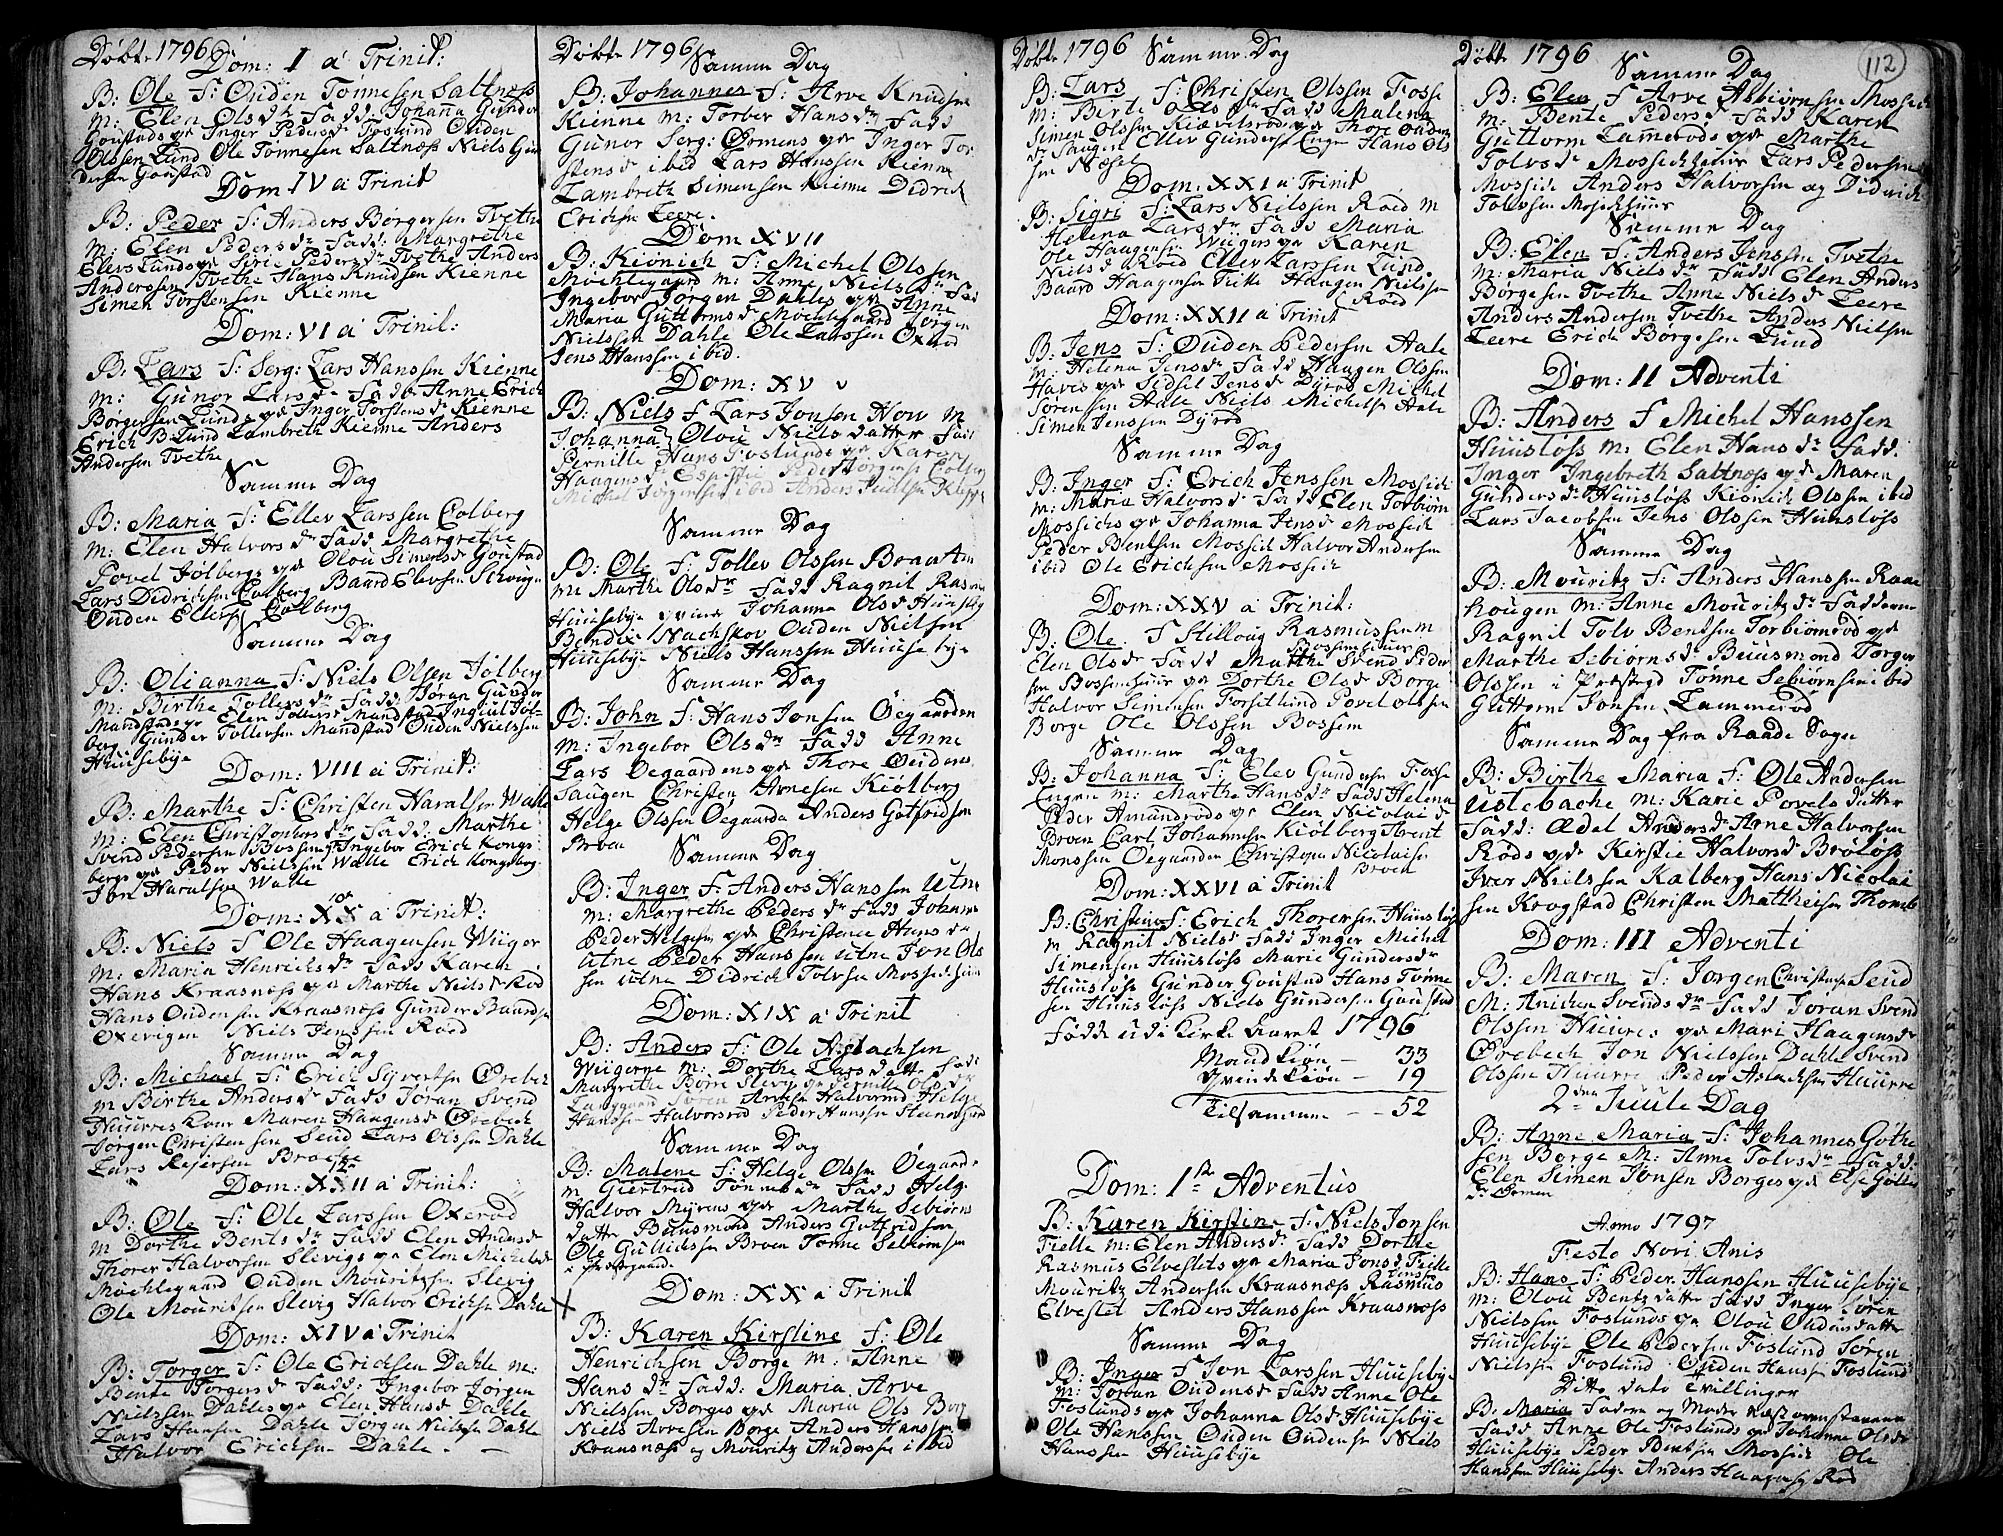 Døbte 1796
Dom: I a Trinit:
B: Ole F: Ouden Tønnesen Saltnæss
M: Elen Ols dr Fadd Johanna Gunder
Goustads qe Inger Peders dr Foslund Ouden
Olssen Lund Ole Tønnesen Saltnæss Niels Gun
dersen Goustad
Dom IV a Trinit
B: Peder F: Anders Børgersen Tvethe
M: Elen Peders dr Fadd: Margrethe
Elevs Lunds qe Peders dr Tvethe Anders
Anderssen Tvethe Hans Knudsen Kienne
Simen Torstensen Kienne
Dom: VI a Trinit:
B: Lars F: Serg: Lars Hanssen Kienne
M: Gunor Lars dr Fadd Anne Erich
Børgersen Lunds qe Inger Torstens dr Kienne
Erich B. Lund Lambreth Kienne Anders
Andersen Tvethe
Samme Dag
B: Maria F: Ellev Larssen Colberg
M: Elen Halvors dr Fadd Margrethe
Povel Jølbergs qe Olou Simens dr Goustad
Lars Didrichsen Colberg Baard Elevsen
Ouden Ellefs: Colberg
Samme Dag
B: Olianna F: Niels Olsen Jølberg
M: Birthe Tollefs dr Fadd: Jøran Gunder
Mandstad qe Elen Tollefs: Mandstad
berg Gunder Tollefsen Mandstad Ouden Nielssen
Huusebÿe
Dom: VIII a Trinit:
B: Marthe F: Christen Haralsen Walle
M: Elen Christophers dr Fadd: Marthe
Svend Pedersen Bossum Ingebor Erich Kongs
bergs qe Peder Nielssen Walle Erich Kongsberg
Jon Haralsen Walle
Dom: XX a Trinit:
B: Niels F Ole Haagensen Wiiger
M: Maria Henrichs dr Fadd Karen
Hans Kraasnæss qe Marthe Niels dr Röd
Hans Oudensen Kraasnæss Gunder Baardsen
Oxevigen Niels Jenssen Röd
Samme Dag
B: Michael F: Erich Sÿvertsen Ørebek
M Birthe Anders dr Fadd Jøran Svend
Huurres Maren Haagens dr Ørebech
Jørgen Christensen Seud Lars Olssen Dahle
Lars Rejersen Braate
Dom: XXII a Trinit:
B: Ole F: Ole Larssen Oxerød
M Dorthe Bents dr Fadd Elen Anders dr
Thorer Halvorsen Slevigs qe Elen Michels dr
Mochlegaard Ouden Mouritzsen Slevig
Ole Mouritsen Slevig Halvor Erichsen Dahle
Dom: XIV a Trinit
B: Torger F: Ole Erichsen Dahle M:
Bente Torgers dr Fadd: Ingebor Jørgen
Nielssen Dahles qe Elen Hans dr Dahle
Lars Hanssen Dahle Jørgen Nielssen Dahle
Halvor Erichsen Dahle.
Døbte 1796
Samme Dag
B: Johannes F: Arve Knudsen
Kienne M: Torber Hans dr Fadd
Gunor Serg: Ormens qe Inger Tor
stens d ibid Lars Hanssen Kienne
Lambreth Simensen Kienne Didrik
Erichsen Leere.
Dom XVII
B: Kiønich F: Michel Olssen
Mochlegaard M: Anne Niels dr Fad
Ingebor Jørgen Dahles qe Anne
Maria Guttorms dr Mochlegaard Jørgen
Nielssen Dahle Ole Larssen Oxerød
Jens Hanssen ibid.
Dom: XV
B: Niels F Lars Jonsen How M
Johanna Olou Niels datter Fad
Pernille Hans Foslunds qe Karen
Haagens dr Peder Jørgensen Colberg
Michel Jørgensen ibid Anders
Samme Dag
B: Ole F: Tollev Olssen Braaten
M: Marthe Ols dr Fadd Ragnil Rasmus
Huusebÿe qvinde Johanna Ols dr Huusebÿ
Bendix Nachskov Ouden Nielsen
Huusebÿe Niels Hanssen Huusebÿe
Samme Dag
B: John F: Hans Jonsen Øegaarden
M: Ingebor Ols dr Fadd Anne
Lars Øegaardens qe Thore Oudens
Saugen Christen Arnesen Kiølberg
Helge Olssen Øegaarda Anders Gotfridsen
Broen
Samme Dag
B: Inger F: Anders Hanssen Utne
M: Margrethe Peders dr Fadd Johan
Peder Helgesen qe Christence Hans dr
Utne Peder Hanssen Utne Jon Ols
sen Utne Didrich Tolvsen Mossichhuus
Dom: XIX a Trinit
B: Anders F: Ole Aslachsen
Wiigerne M: Dorthe Lars datter Fad
Margrethe Børre Slevigs qe Pernille Ols dr
Langgaard Søren Arnesen Halvorsrød Helge
Hanssen Halvorsrød Peder Hanssen
Samme Dag
B: Malene F: Helge Olssen Øegaard
M Giertrud Tønnes dr Fadd Helge
Halvor Myrens qe Marthe Sebiørns
datter Buusmond Anders Gutfridsen
Ole Gullichssen Broen Tønne Sebiørnsen
i Præstgaard
Dom: XX a Trinit
B: Karen Kirstine F: Ole
Henrichsen Borge M: Anne
Hans dr Fadd: Maria Arve
Nielssen Borges qe Maria Ols Borg
Niels Arvesen Borge Anders Hanssen
Kraasnæss og Mouritz Anderssen ibid
Døbte 1796
Samme Dag
B: Lars F: Christen Olssen Fosse
M: Birte Ols dr Fadd Malena
Simen Olssen Kiævelsrøds qe Thore Oudens
dr Saugen Ellev Gunders: Enge Hans Ols
sen Næsel
Dom: XXI a Trinit
B: Sigri F: Lars Nielssen Röd M
Helena Lars dr Fadd Maria
Ole Haagensen Wiigers qe Karen
Niels dr Röd Ellev Larssen Lund
Baard Haagensen Haagen Nielssen
Röd
Dom: XXII a Trinit
B: Jens F: Ouden Pedersen Aale
M: Helena Jens dr Fadd Haagen Olssen
Haves qe Sidsel Jens dr Dÿrød Michel
Sørensen Aale Niels Michelsen Aale
Simen Jenssen Dÿrød
Samme Dag
B: Inger F: Erich Jenssen Mossich
M: Maria Halvors dr Fadd Elen Torbiørn
Mossichs qe Johanna Jens dr Mossich
Peder Bentsen Mossich Halvor Andersen
ibid Ole Erichsen Mossich
Dom: XXV a Trinit:
B: Ole F Rasmussen M
Elen Ols dr Fadd Marthe Svend Peder
sen qe Dorthe Ols dr Borge
Halvor Simensen Forsetlund Povel Olssen
Borge Ole Olssen Bossem
Samme Dag
B: Johanna F: Elev Gundersen Fosse
Engen M: Marthe Hans dr Fadd Helena
Peder Amundrøds qe Elen Nicolai dr
Broen Carl Johannesen Kiølberg Arent
Monssen Øegaarden Christopher Nicolaisen
Broen
Dom: XXVI a Trinit
B: Christine F: Erich Thorersen Huusløs
M Ragnil Niels dr Fadd Inger Michel
Simensen Huusløss Marie Gunders dr
Huusløss Gunder Goustad Hans Tønne
sen Huusløss Niels Gundersen Goustad
Fødde udi Kirke Aaret 1796
Mandkiøn - 33
Qvindekiøn - 19
Tilsammen - - 52
Dom: 1ste Adventus
B: Karen Kirstine F: Niels Jonsen
Fielle M: Elen Anders dr Fadd Dorthe
Rasmus Elvestets qe Maria Jons dr
Mouritz Andersen Kraasnæss Rasmus
Elvestet Anders Hanssen Kraasnæss
Samme Dag
B: Inger F Jon Larssen Huusebÿe
M: Jøran Oudens dr Fadd Anne Ole
Foslunds qe Johanna Ols dr Huusebÿe
Ole Hanssen Ouden Oudensen Niels
Hanssen Huusebÿe
Døbte 1796
112
Samme Dag
B: Elen F Arve Asbiørnsen Mossich
M: Bente Peders dr Fadd Karen
Guttorm Lammerøds qe Marthe
Tolvs dr Mossichhuus Lars Pedersen
Mossich Anders Halvorsen og Didrich
Tolvsen Mossichhuus
Samme Dag
B: Elen F: Anders Jenssen Tvethe
M: Maria Niels dr Fadd Elen Anders
Børgesen Tvethe Anne Niels dr Leere
Anders Andersen Tvethe Anders Nielsen
Leere Erich Børgesen Lund
Dom: II Adventi
B: Anders F Michel Hanssen
Huusløss M: Elen Hans dr Fadd.
Inger Ingebreth Saltnæss qe Maren
Gunders dr Huusløss Kiønich Olssen ibid
Lars Jacobsen Jens Olssen Huusløss
Samme Dag
B: Mouritz F: Anders Hanssen Raae
Hougen M: Anne Mouritz dr Fadderne
Ragnil Tolv Bentsen Torbiørnrød qe
Marthe Sebiørns dr Buusmond Torger
Olssen i Præstegd Tønne Sebiørnsen ibid
Guttorm Jonsen Lammerød
Samme Dag fra Raade Sogn
B: Birthe Maria F: Ole Andersen
Ustebache M: Karie Povels datter
Fadd: Ædel Anders dr Arne Halvorsen
Röds qe Kirstie Halvors dr Brøløss
Iver Nielssen Kalberg Hans Nicolai
sen Krogstad Christen Mattheisen Thomb
Dom: III Adventi
B: Maren F: Jørgen Christens: Seud
M: Anichen Svends dr Fadd Jøran Svend
Olssen Huurres qe Mari Haagens dr
Ørebech Jon Nielssen Dahle Svend
Olssen Huurre Peder Aslachsen Huurre
2den Juule Dag
B: Anne Maria F: Johannes Gøthe
sen Borge M: Anne Tolvs dr Fadd:
Elen Simen Jonsen Borges qe Else
dr Ormen
Anno 1797
Festo Novi Anis
B: Hans F: Peder Hanssen Huusebÿe
M: Olou Bents datter Fadd Inger Søren
Nielssen Foslunds qe Olou Oudensdatter
Huusebÿe Ole Pedersen Foslund Søren
Nielssen Foslund Ouden Hanssen Foslund
Ditto dato Tvillinger
B: Maria Fadern og Moder næst ovenstaaende
Fadd Anne Ole Foslunds qe Johanne Ols dr
Huusebÿe Peder Bentsen Mossich Ole
Hanssen Huusebÿe Anders Haagens: Röd